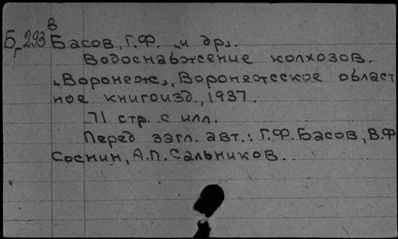 В
Б 293 Басов, Г.Ф. „и др„.
Водоснабжение колхозов.
„Воронеж„, Воронежское област
ное книгоизд., 1937.
71 стр. с илл.
Перед загл. авт.: Г.Ф. Басов, В.Ф
Соснин, А.П. Сальников.